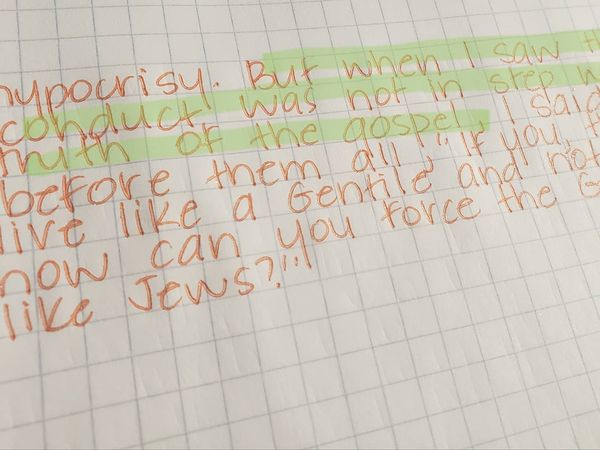 hypocrisy. But when I saw
conduct was not in step
truth of the gospel, I said
before them all, "If you,
live like a Gentile and not
how can you force the
like Jews?"'